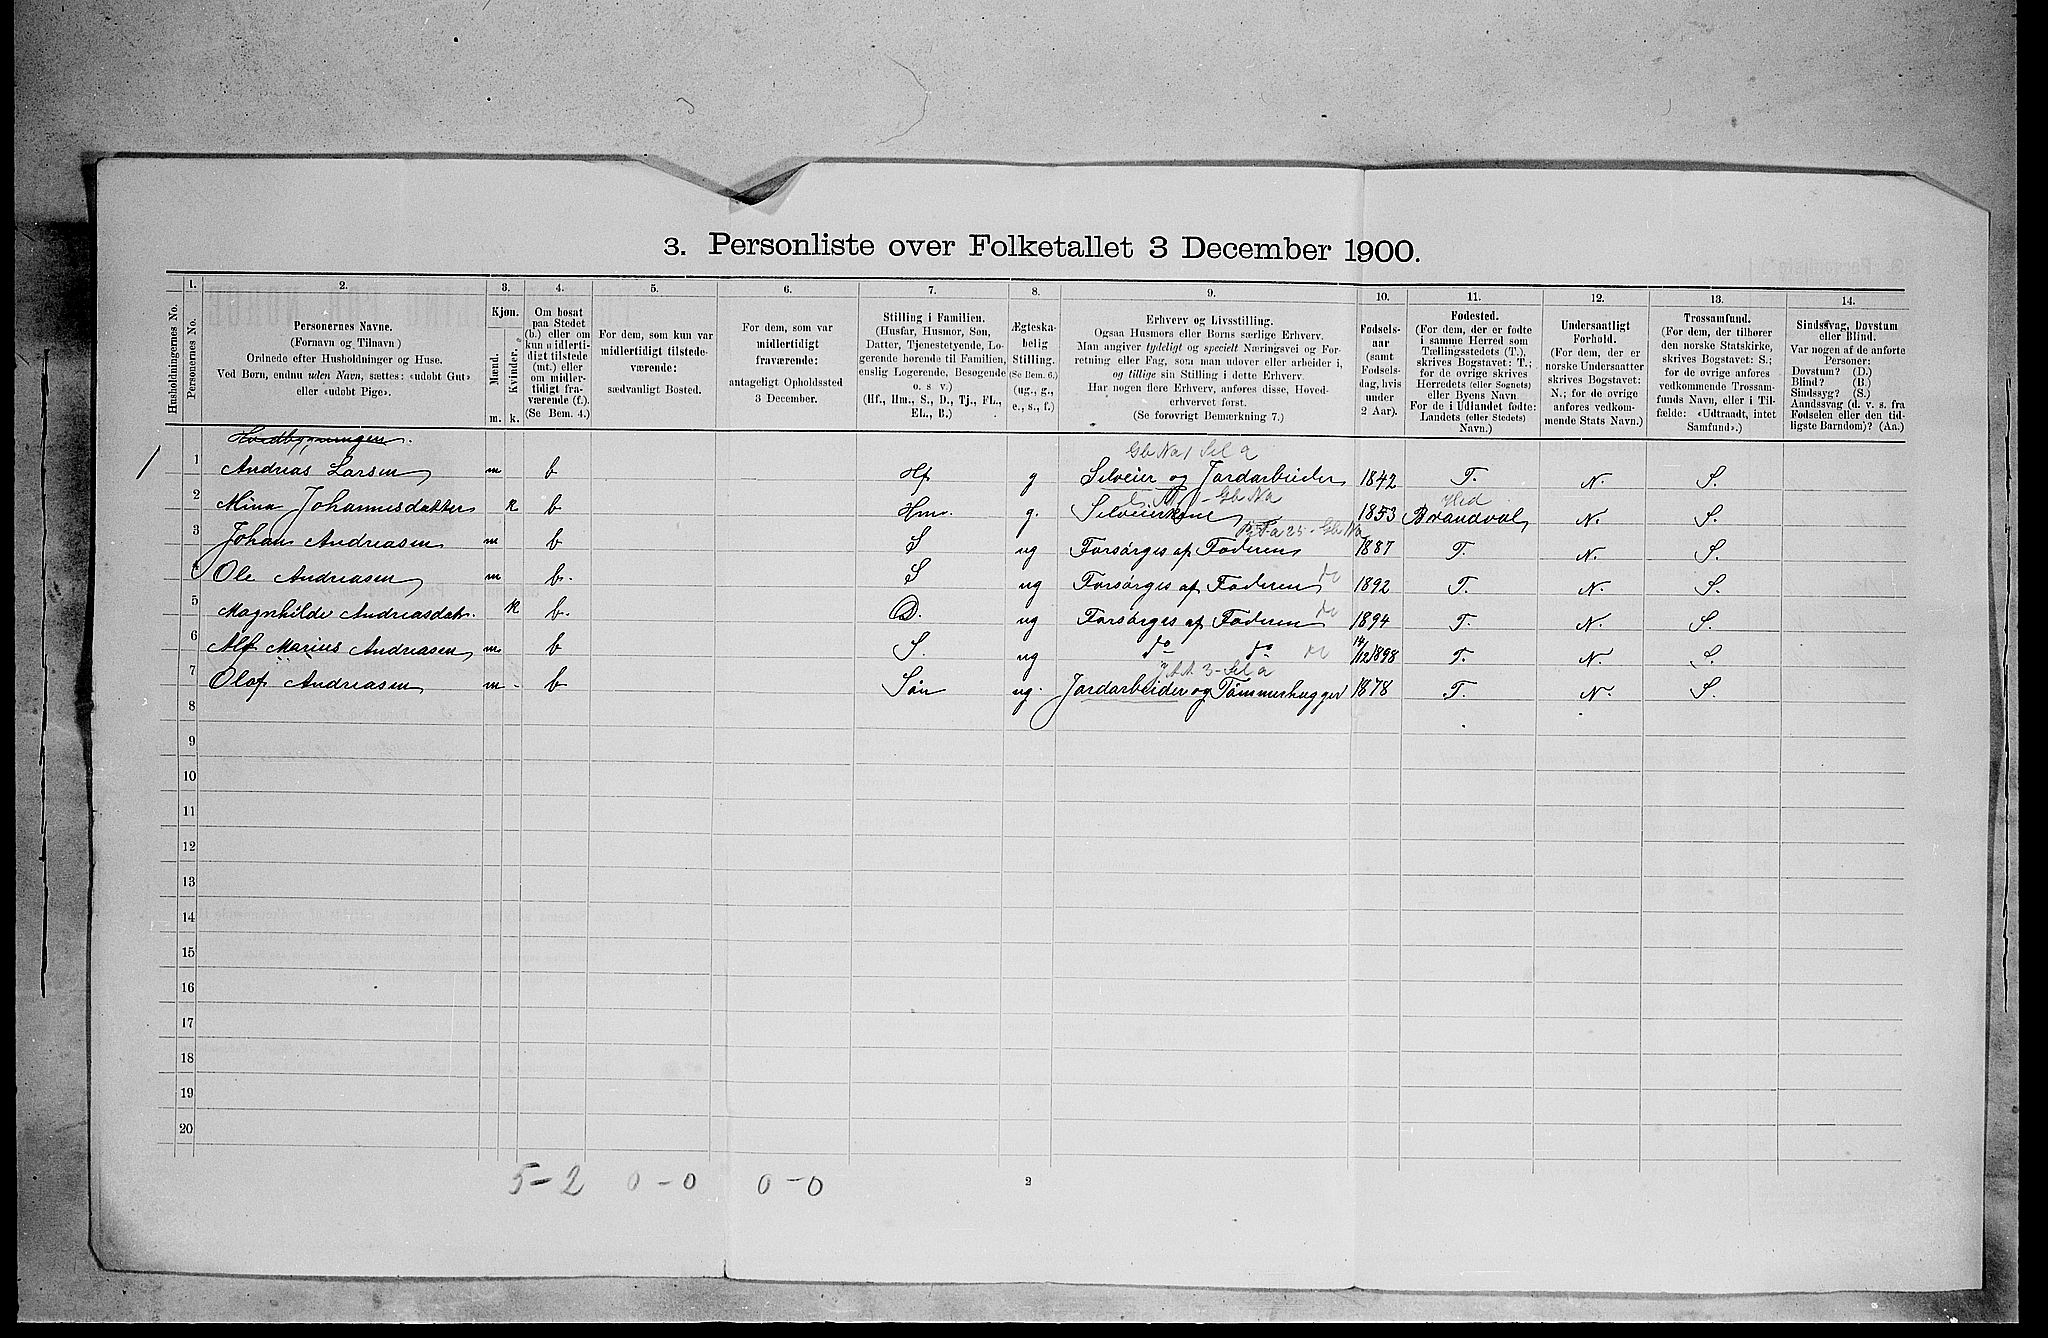 3. Personliste over Folketallet 3 December 1900.
Husholdningernes No.
1.
Personernes No.
2.
Personernes Navne.
(Fornavn og Tilnavn)
Ordnede efter Husholdninger og Huse.
Ved Børn, endnu uden Navn, sættes: «udøbt Gut»
eller «udøbt Pige».
3.
Kjøn.
Mænd.
Kvinder.
m. k.
4.
Om bosat
paa Stedet
(b.) eller om
kun midlerti-
digt tilstede
(mt.) eller
om midler-
tidigt fra-
værende (f.).
(Se Bem. 4.)
5.
For dem, som kun var
midlertidigt tilstede-
værende:
sædvanligt Bosted.
6.
For dem, som var
midlertidigt
fraværende:
antageligt Opholdssted
3 December.
7.
Stilling i Familien.
(Husfar, Husmor, Søn,
Datter, Tjenestetyende, Lo-
gerende hørende til Familien,
enslig Logerende, Besøgende
o. s. v.)
(Hf., Hm., S., D., Tj., FL.,
EL., B.)
8.
Ægteska-
belig
Stilling.
(Se Bem. 6.)
(ug., g.,
e., s., f.)
9.
Erhverv og Livsstilling.
Ogsaa Husmors eller Børns særlige Erhverv.
Man angiver tydeligt og specielt Næringsvei og For-
retning eller Fag, som man udover eller arbeider i,
og tillige sin Stilling i dette Erhverv.
Har nogen flere Erhverv, anføres disse, Hoved-
erhvervet først.
(Se forøvrigt Bemerkning 7.)
10.
Fødsels-
aar
(samt
Fødsels-
dag, hvis
under
2 Aar).
11.
Fødested.
(For dem, der er fødte
i samme Herred som
Tællingsstedets (T.),
skrives Bogstavet: T.;
for de øvrige skrives
Herredets (eller Sognets)
eller Byens Navn
For de i Udlandet fødte:
Landets (eller Stedets)
Navn.)
12.
Undersaatligt
Forhold.
(For dem, der er
norske Undersaatter
skrives Bogstavet:
N.; for de øvrige
anføres vedkom-
mende Stats Navn.)
13.
Trossamfund.
(For dem, der tilhører
den norske Statskirke,
skrives Bogstavet: S.;
for de øvrige anføres
vedkommende Trossam-
funds Navn, eller i Til-
fælde: «Udtraadt, intet
Samfund».)
14.
Sindssvag, Døvstum
eller Blind.
Var nogen af de anførte
Personer:
Døvstum? (D.)
Blind? (B.)
Sindssyg? (S.)
Aandssvag (d. v. s. fra
Fødselen eller den tid-
ligste Barndom)? (Aa.)
Hvedbygningen.
1 1 Andreas Larsen m b Hf g Selveier og Jordarbeider 1842 T. N. S.
2 Mina Johannesdatter k b Hm. g. Selveierkone 1853 Brandval N. S.
3 Johan Andreasen m b S ug Forsørges af Faderen 1887 T. N. S.
4 Ole Andreasen m b. S ug Forsørges af Faderen do 1892 T. N. S.
5 Magnhilde Andreasdatr. k b. D. ug Forsørges af Faderen do 1894 T. N. S.
6 Alf Marius Andreasen m. b S. ug do do do 14/12 1898 T. N. S.
7 Olaf Andreasen m. b Søn ug. Jordarbeider og Tømmerhugger 1878 T. N. S.
8
9
10
11
12
13
14
15
16
17
18
19
20
5-2 0-0 0-0
2